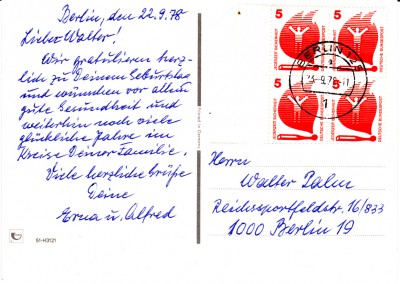 Berlin, den 22.9.78
Lieber Walter!
Wir gratulieren herz-
lich zu Deinem Geburtstag
und wünschen vor allem
gute Gesundheit und
weiterhin noch viele
glückliche Jahre im
Kreise Deiner Familie.
Viele herzliche Grüße
Deine
Erna u. Alfred
51-H3121
Printed in Germany
5
5
5
5
JEDERZEIT SICHERHEIT
DEUTSCHE BUNDESPOST
JEDERZEIT SICHERHEIT
DEUTSCHE BUNDESPOST
BERLIN
1
Herrn
Walter Palm
Reichssportfeldstr. 16/833
1000 Berlin 19